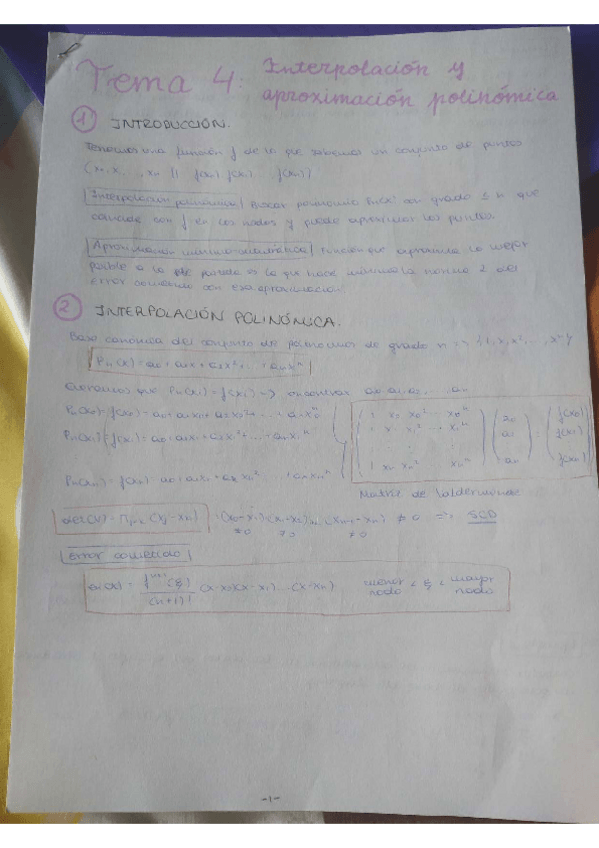 Tema 4: Interpolación y
aproximación polinómica
1 INTRODUCCIÓN.
Tenemos una función f de la que sabemos un conjunto de puntos
(x0, x1, ..., xn) f(x0) f(x1) ... f(xn)
Interpolación polinómica Buscar polinomio Pn(x) con grado ≤ n que
coincide con f en los nodos y puede aproximar los puntos.
Aproximación mínimo-cuadrática Función que aproxima lo mejor
posible a la es la que hace mínima la norma 2 del
error cometido con esa aproximación.
2 INTERPOLACIÓN POLINÓMICA.
Base canónica del conjunto de polinomios de grado n => {1, x, x², ..., xⁿ}
Pn(x) = a0 + a1x + a2x² + ... + anxⁿ
Queremos que Pn(xi) = f(xi) -> encontrar a0, a1, a2, ..., an
Pn(x0) = f(x0) = a0 + a1x0 + a2x0² + ... + anx0ⁿ
Pn(x1) = f(x1) = a0 + a1x1 + a2x1² + ... + anx1ⁿ
Pn(xn) = f(xn) = a0 + a1xn + a2xn² + ... + anxnⁿ
1 x0 x0² ... x0ⁿ a0 f(x0)
1 x1 x1² ... x1ⁿ a1 = f(x1)
1 xn xn² ... xnⁿ an f(xn)
Matriz de Valdermonde
det(V) = Π (xj - xi) ≠ 0 => SCD
≠0 ≠0 ≠0
Error cometido
(x-x0)(x-x1)...(x-xn) menor nodo < ξ < mayor nodo
(n+1)!
-1-